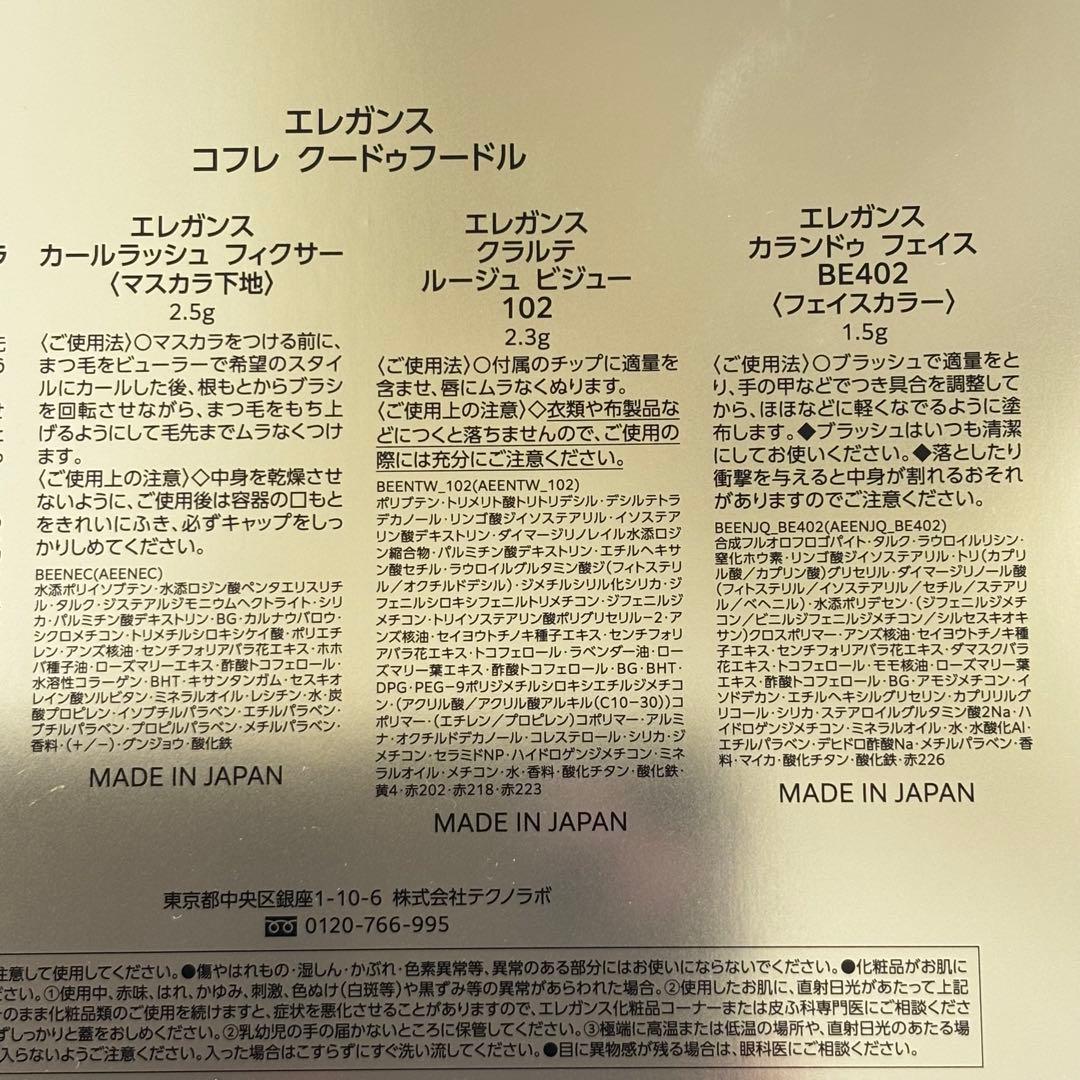 エレガンス
コフレ クードゥフードル
エレガンス
カールラッシュ フィクサー
〈マスカラ下地〉
2.5g
〈ご使用法〉○マスカラをつける前に、
まつ毛をビューラーで希望のスタイ
ルにカールした後、根もとからブラシ
を回転させながら、まつ毛をもち上
げるようにして毛先までムラなくつけ
ます。
〈ご使用上の注意〉◇中身を乾燥させ
ないように、ご使用後は容器の口もと
をきれいにふき、必ずキャップをしっ
かりしめてください。
BEENEC(AEENEC)
水添ポリイソブテン・水添ロジン酸ペンタエリスリチ
ル・タルク・ジステアルジモニウムヘクトライト・シリ
カ・パルミチン酸デキストリン・BG・カルナウバロウ・
シクロメチコン・トリメチルシロキシケイ酸・ポリエチ
レン・アンズ核油・センチフォリアバラ花エキス・ホホ
バ種子油・ローズマリーエキス・酢酸トコフェロール・
水溶性コラーゲン・BHT・キサンタンガム・セスキオ
レイン酸ソルビタン・ミネラルオイル・レシチン・水・炭
酸プロピレン・イソブチルパラベン・エチルパラベン・
ブチルパラベン・プロピルパラベン・メチルパラベン・
香料・(+/-)・グンジョウ・酸化鉄
MADE IN JAPAN
エレガンス
クラルテ
ルージュ ビジュー
102
2.3g
〈ご使用法〉○付属のチップに適量を
含ませ、唇にムラなくぬります。
〈ご使用上の注意〉◇衣類や布製品な
どにつくと落ちませんので、ご使用の
際には充分にご注意ください。
BEENTW_102(AEENTW_102)
ポリブテン・トリメリト酸トリトリデシル・デシルテトラ
デカノール・リンゴ酸ジイソステアリル・イソステア
リン酸デキストリン・ダイマージリノレイル水添ロジ
ン縮合物・パルミチン酸デキストリン・エチルヘキサ
ン酸セチル・ラウロイルグルタミン酸ジ(フィトステリ
ル/オクチルドデシル)・ジメチルシリル化シリカ・ジ
フェニルシロキシフェニルトリメチコン・ジフェニルジ
メチコン・トリイソステアリン酸ポリグリセリル-2・ア
ンズ核油・セイヨウトチノキ種子エキス・センチフォリ
アバラ花エキス・トコフェロール・ラベンダー油・ロー
ズマリー葉エキス・酢酸トコフェロール・BG・BHT・
DPG・PEG-9ポリジメチルシロキシエチルジメチコ
ン・(アクリル酸/アクリル酸アルキル(C10-30))コ
ポリマー・(エチレン/プロピレン)コポリマー・アルミ
ナ・オクチルドデカノール・コレステロール・シリカ・ジ
メチコン・セラミドNP・ハイドロゲンジメチコン・ミネ
ラルオイル・メチコン・水・香料・酸化チタン・酸化鉄・
黄4・赤202・赤218・赤223
MADE IN JAPAN
エレガンス
カランドゥ フェイス
BE402
〈フェイスカラー〉
1.5g
〈ご使用法〉○ブラッシュで適量をと
り、手の甲などでつき具合を調整して
から、ほほなどに軽くなでるように塗
布します。◆ブラッシュはいつも清潔
にしてお使いください。◆落としたり
衝撃を与えると中身が割れるおそれ
がありますのでご注意ください。
BEENJQ_BE402(AEENJQ_BE402)
合成フルオロフロゴパイト・タルク・ラウロイルリシン・
窒化ホウ素・リンゴ酸ジイソステアリル・トリ(カプリ
ル酸/カプリン酸)グリセリル・ダイマージリノール酸
(フィトステリル/イソステアリル/セチル/ステアリ
ル/ベヘニル)・水添ポリデセン・(ジフェニルジメチ
コン/ビニルジフェニルジメチコン/シルセスキオキ
サン)クロスポリマー・アンズ核油・セイヨウトチノキ種
子エキス・センチフォリアバラ花エキス・ダマスクバラ
花エキス・トコフェロール・モモ核油・ローズマリー葉
エキス・酢酸トコフェロール・BG・アモジメチコン・イ
ソドデカン・エチルヘキシルグリセリン・カプリリルグ
リコール・シリカ・ステアロイルグルタミン酸2Na・ハ
イドロゲンジメチコン・ミネラルオイル・水・水酸化Al・
エチルパラベン・デヒドロ酢酸Na・メチルパラベン・香
料・マイカ・酸化チタン・酸化鉄・赤226
MADE IN JAPAN
東京都中央区銀座1-10-6 株式会社テクノラボ
0120-766-995
注意して使用してください。●傷やはれもの・湿しん・かぶれ・色素異常等、異常のある部分にはお使いにならないでください。●化粧品がお肌に
ださい。①使用中、赤味、はれ、かゆみ、刺激、色ぬけ(白斑等)や黒ずみ等の異常があらわれた場合。②使用したお肌に、直射日光があたって上記
のまま化粧品類のご使用を続けますと、症状を悪化させることがありますので、エレガンス化粧品コーナーまたは皮ふ科専門医にご相談くださ
ずしっかりと蓋をおしめください。②乳幼児の手の届かないところに保管してください。③極端に高温または低温の場所や、直射日光のあたる場
入らないようご注意ください。入った場合はこすらずにすぐ洗い流してください。●目に異物感が残る場合は、眼科医にご相談ください。